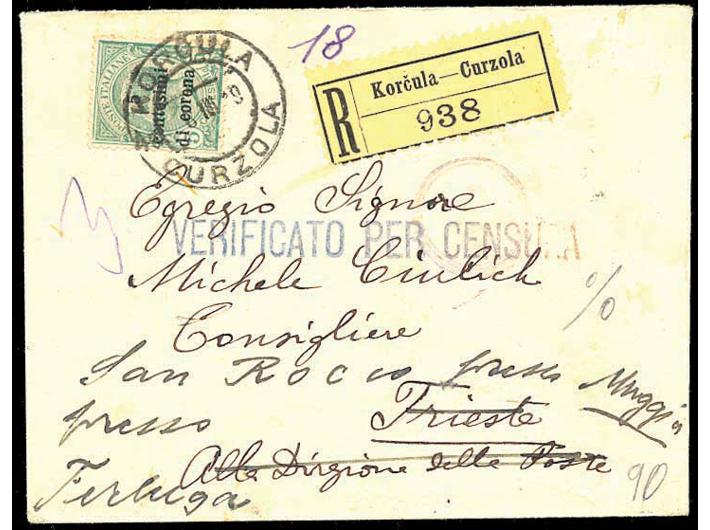 18
POSTE ITALIANE
centesimi
di corona
KORČULA
CURZOLA
Korčula—Curzola
R
938
VERIFICATO PER CENSURA
Egregio Signore
Michele Ciulich
Consigliere
%
San Rocco presso Muggia
presso Trieste
Alla Dirzione delle Poste
Ferluga
90